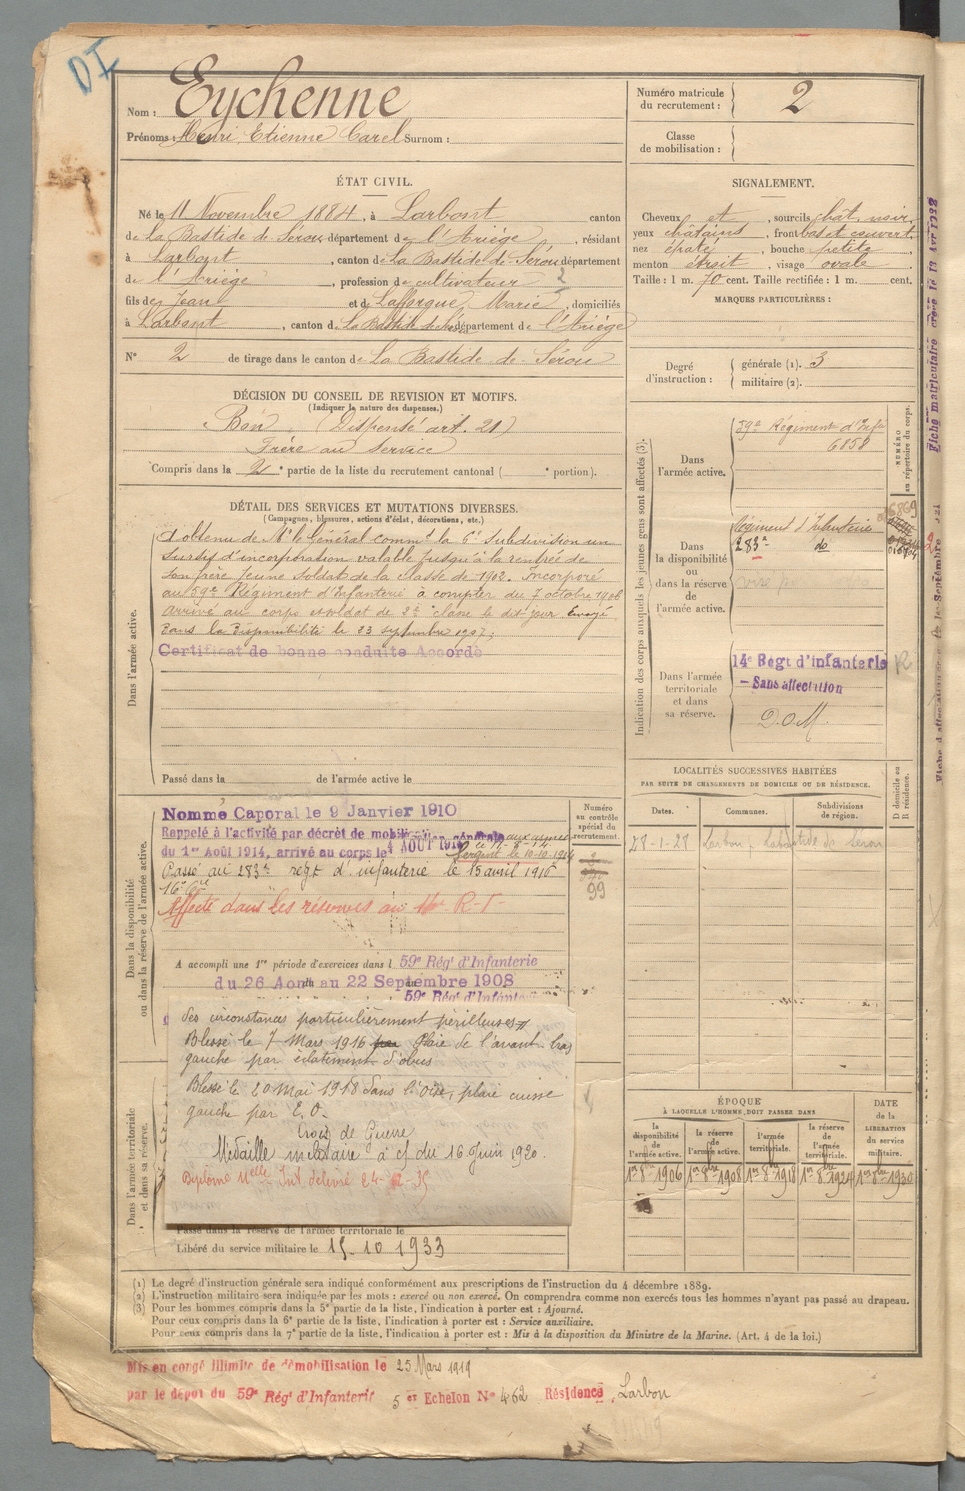 DI
Nom : Eychenne
Prénoms : Henri Etienne Carel Surnom :
Numéro matricule du recrutement : 2
Classe de mobilisation :
ÉTAT CIVIL.
Né le 11 Novembre 1884, à Larbont canton
de La Bastide de Sérou département de l'Ariège, résidant
à Larbont, canton de La Bastide de Sérou département
de l'Ariège, profession de cultivateur 2
fils de Jean et de Lafforgue Marie, domiciliés
à Larbont, canton de La Bastide de Sérou département de l'Ariège
N° 2 de tirage dans le canton de La Bastide de Sérou
SIGNALEMENT.
Cheveux et, sourcils chât. noir.
yeux châtains, front bas et couvert
nez épaté, bouche petite
menton étroit, visage ovale
Taille : 1 m. 70 cent. Taille rectifiée : 1 m. cent.
MARQUES PARTICULIÈRES :
Degré d'instruction :
générale (1). 3
militaire (2).
DÉCISION DU CONSEIL DE REVISION ET MOTIFS.
(Indiquer la nature des dispenses.)
Bon (Dispensé art. 21)
Frère au service
Compris dans la 2e partie de la liste du recrutement cantonal ( e portion).
DÉTAIL DES SERVICES ET MUTATIONS DIVERSES.
(Campagnes, blessures, actions d'éclat, décorations, etc.)
Dans l'armée active.
A obtenu de Mr le Général commt la 6e Subdivision un
sursis d'incorporation valable jusqu'à la rentrée de
son frère jeune soldat de la classe de 1902. Incorporé
au 59e Régiment d'Infanterie à compter du 7 octobre 1906
arrivé au corps et soldat de 2e classe le dit jour. Envoyé
dans la disponibilité le 23 septembre 1907;
Certificat de bonne conduite Accordé
Passé dans la de l'armée active le
Indication des corps auxquels les jeunes gens sont affectés (3).
NUMÉRO au répertoire du corps.
Dans l'armée active.
59e Régiment d'Infie
6858
Dans la disponibilité ou dans la réserve de l'armée active.
Régiment d'Infanterie
283e do
Dans l'armée territoriale et dans sa réserve.
14e Régt d'Infanterie
- Sans affectation
D.O.M.
LOCALITÉS SUCCESSIVES HABITÉES
PAR SUITE DE CHANGEMENTS DE DOMICILE OU DE RÉSIDENCE.
Dates. Communes. Subdivisions de région.
D domicile ou R résidence.
Larbon. Labastide de Sérou
Dans la disponibilité ou dans la réserve de l'armée active.
Numéro au contrôle spécial du recrutement.
99
Nommé Caporal le 9 Janvier 1910
Rappelé à l'activité par décret de mobilisation générale aux armées
du 1er Août 1914, arrivé au corps le 4 AOUT 1914 Sergent le 10-10-1914
Passé au 283e régt d'infanterie le 15 avril 1916
Affecté dans les réserves au R.I.
A accompli une 1re période d'exercices dans l 59e Rég' d'Infanterie
du 26 Août au 22 Septembre 1908
59e Rég' d'Infanterie
des circonstances particulièrement périlleuses
Blessé le 7 Mars 1916 Plaie de l'avant-bras
gauche par éclatement d'obus
Blessé le 20 Mai 1918 dans l'Oise, plaie cuisse
gauche par E.O.
Croix de Guerre
Médaille militaire à c/ du 16 Juin 1920.
Dans l'armée territoriale et dans sa réserve.
Passé dans la réserve de l'armée territoriale le
Libéré du service militaire le 15-10 1933
ÉPOQUE
À LAQUELLE L'HOMME DOIT PASSER DANS
la disponibilité de l'armée active. la réserve de l'armée active. l'armée territoriale. la réserve de l'armée territoriale.
DATE de la LIBÉRATION du service militaire.
1er 8bre 1906 1er 8bre 1908 1er 8bre 1918 1er 8bre 1924 1er 8bre 1930
(1) Le degré d'instruction générale sera indiqué conformément aux prescriptions de l'instruction du 4 décembre 1889.
(2) L'instruction militaire sera indiquée par les mots : exercé ou non exercé. On comprendra comme non exercés tous les hommes n'ayant pas passé au drapeau.
(3) Pour les hommes compris dans la 5e partie de la liste, l'indication à porter est : Ajourné.
Pour ceux compris dans la 6e partie de la liste, l'indication à porter est : Service auxiliaire.
Pour ceux compris dans la 7e partie de la liste, l'indication à porter est : Mis à la disposition du Ministre de la Marine. (Art. 4 de la loi.)
Mis en congé illimité de démobilisation le 25 Mars 1919
par le dépot du 59e Rég' d'Infanterie 5 er Echelon N° 462 Résidence Larbon